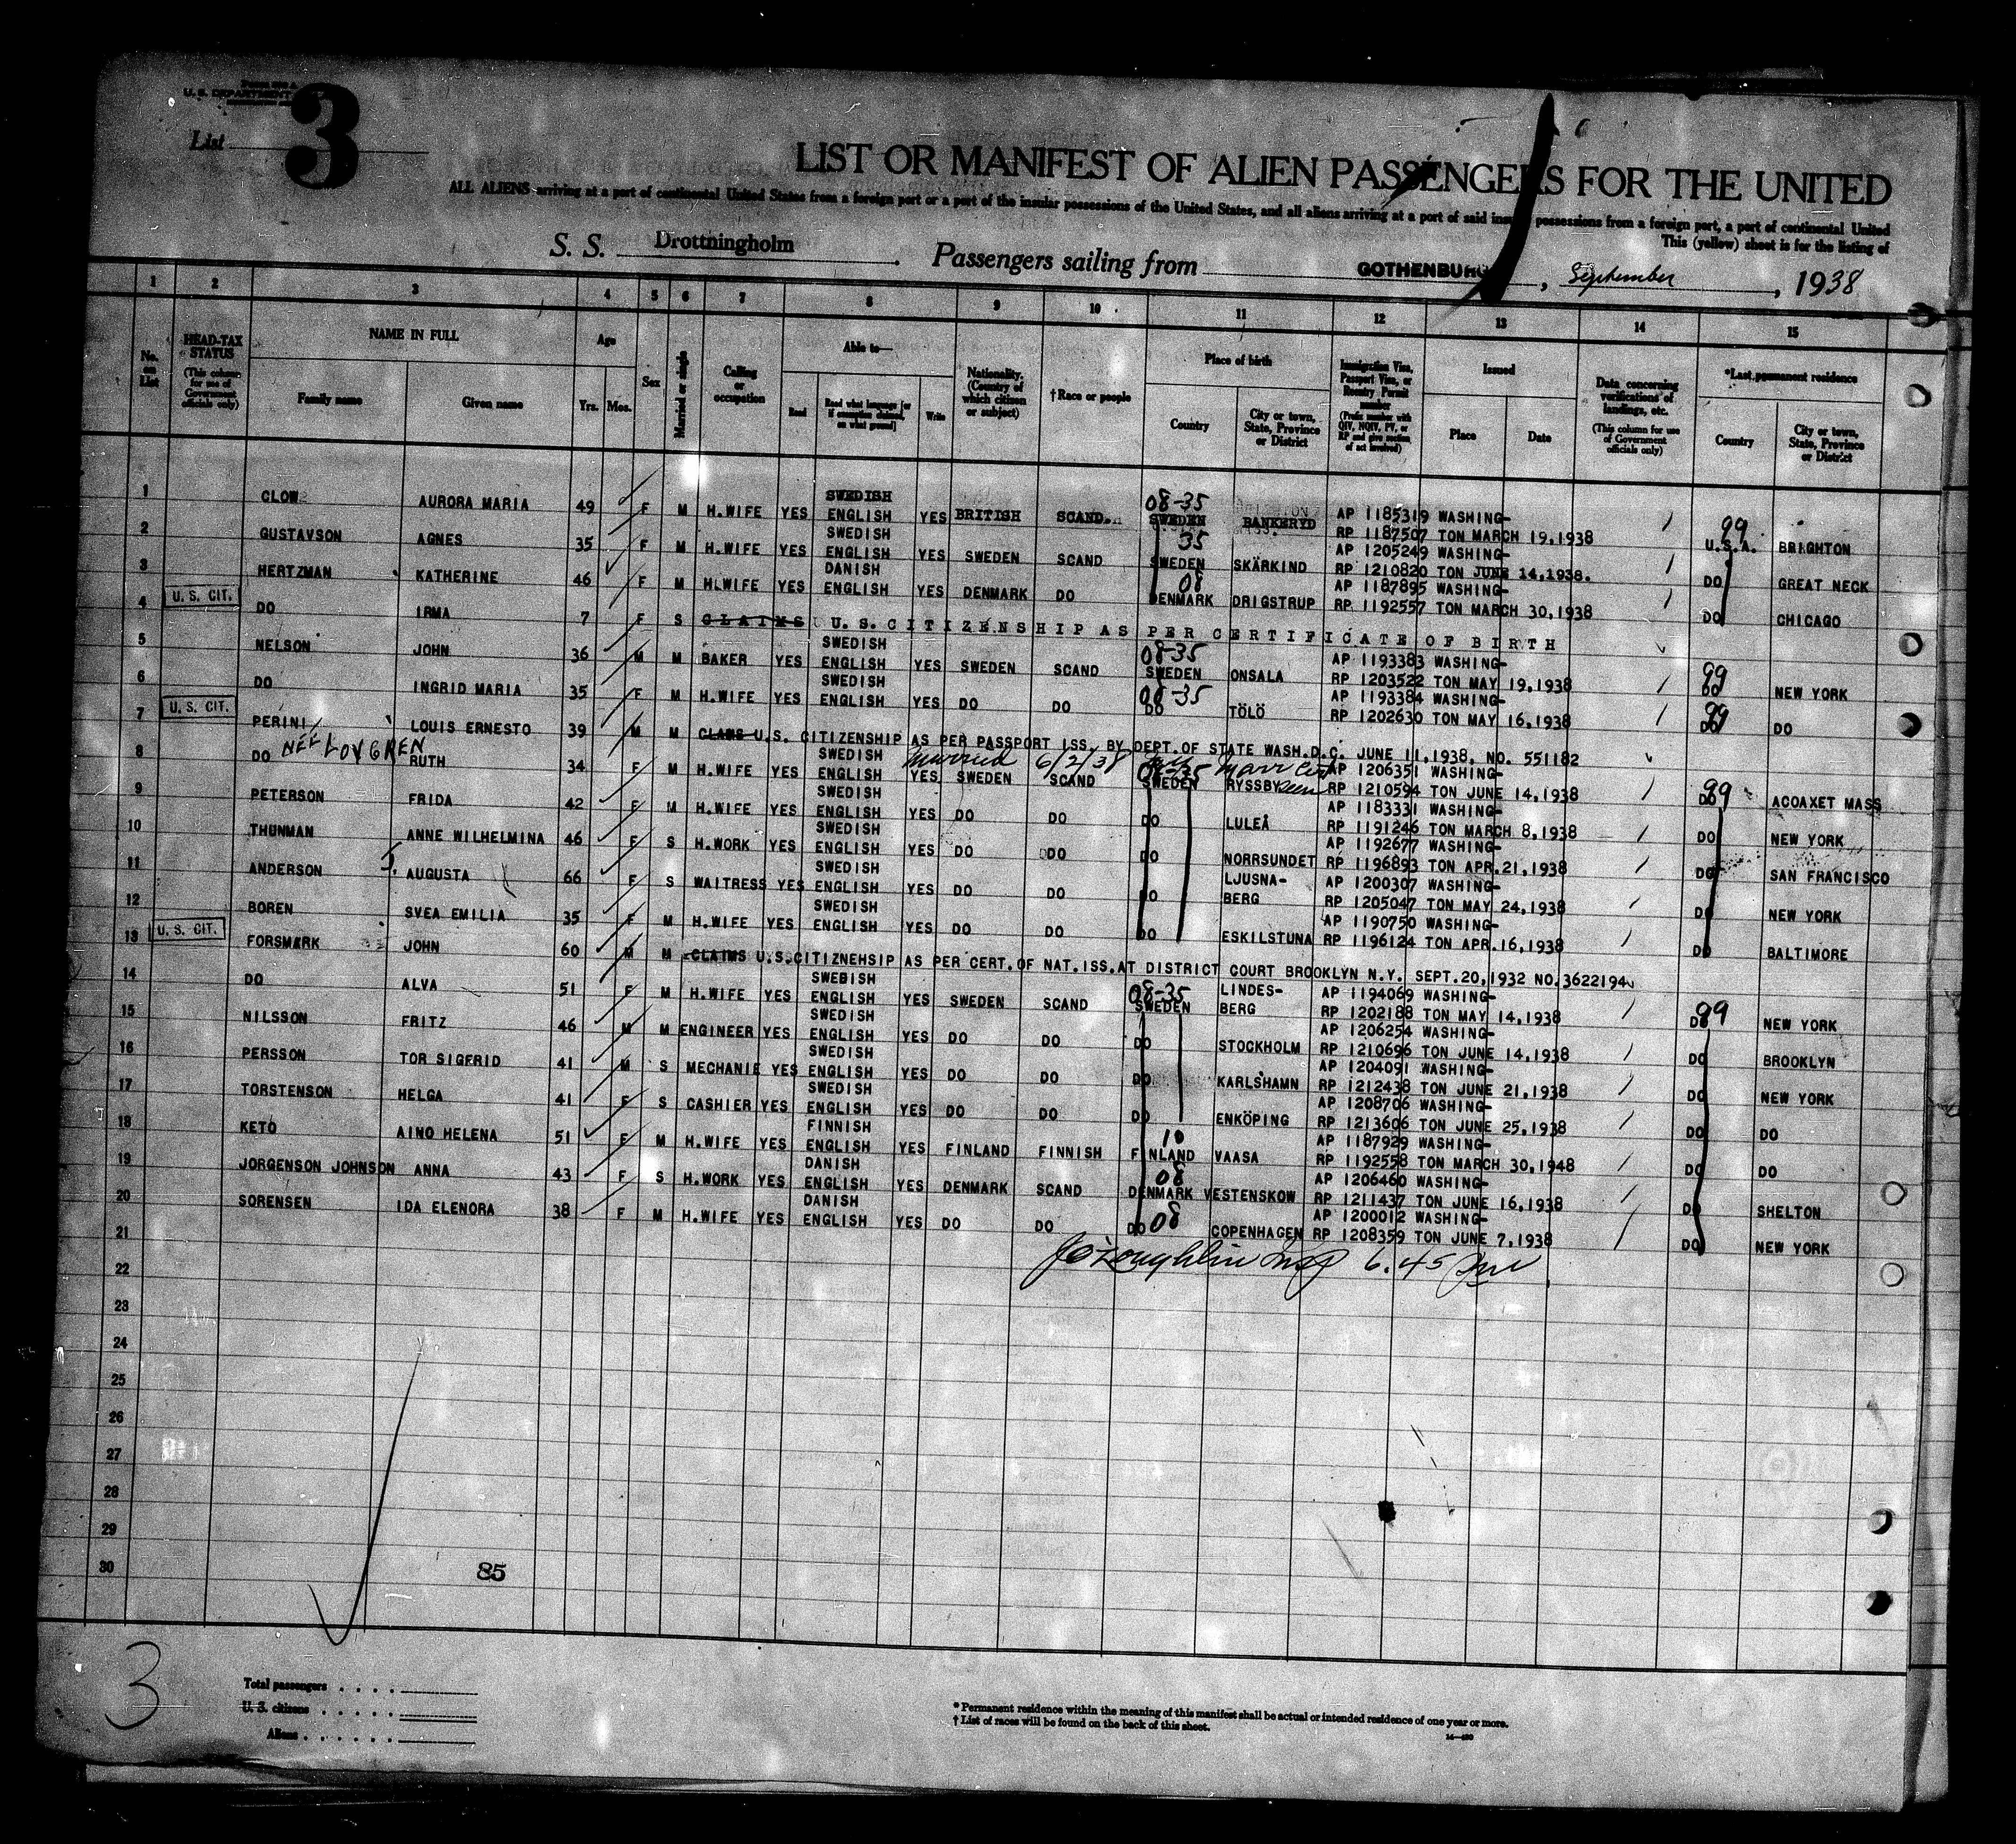 U. S. DEPARTMENT
List 3
LIST OR MANIFEST OF ALIEN PASSENGERS FOR THE UNITED
ALL ALIENS arriving at a port of continental United States from a foreign port or a port of the insular possessions of the United States, and all aliens arriving at a port of said insular possessions from a foreign port, a port of continental United
This (yellow) sheet is for the listing of
S. S. Drottningholm. Passengers sailing from GOTHENBURG, September, 1938
1 2 3 4 5 6 7 8 9 10 11 12 13 14 15
No. on List
HEAD-TAX STATUS (This column for use of Government officials only)
NAME IN FULL
Family name
Given name
Age
Yrs. Mos.
Sex
Married or single
Calling or occupation
Able to—
Read
Read what language [or if exemption claimed, on what ground]
Write
Nationality. (Country of which citizen or subject)
†Race or people
Place of birth
Country
City or town, State, Province or District
Immigration Visa, Passport Visa, or Reentry Permit number (Prefix number with QIV, NQIV, PV, or RP and give section of act involved)
Issued
Place
Date
Data concerning verifications of landings, etc. (This column for use of Government officials only)
*Last permanent residence
Country
City or town, State, Province or District
1 CLOW AURORA MARIA 49 F M H.WIFE YES SWEDISH ENGLISH YES BRITISH SCAND. 08-35 SWEDEN BANKERYD AP 1185319 WASHING- RP 1187507 TON MARCH 19,1938 99 U.S.A. BRIGHTON
2 GUSTAVSON AGNES 35 F M H.WIFE YES SWEDISH ENGLISH YES SWEDEN SCAND 35 SWEDEN SKÄRKIND AP 1205249 WASHING- RP 1210820 TON JUNE 14,1938. DO GREAT NECK
3 HERTZMAN KATHERINE 46 F M H.WIFE YES DANISH ENGLISH YES DENMARK DO 08 DENMARK DRIGSTRUP AP 1187895 WASHING- RP 1192557 TON MARCH 30,1938 DO CHICAGO
4 U. S. CIT. DO IRMA 7 F S CLAIMS U.S. CITIZENSHIP AS PER CERTIFICATE OF BIRTH
5 NELSON JOHN 36 M M BAKER YES SWEDISH ENGLISH YES SWEDEN SCAND 08-35 SWEDEN ONSALA AP 1193383 WASHING- RP 1203522 TON MAY 19,1938 99 DO NEW YORK
6 DO INGRID MARIA 35 F M H.WIFE YES SWEDISH ENGLISH YES DO DO 08-35 DO TÖLÖ AP 1193384 WASHING- RP 1202630 TON MAY 16,1938 99 DO DO
7 U. S. CIT. PERINI LOUIS ERNESTO 39 M M CLAIMS U.S. CITIZENSHIP AS PER PASSPORT ISS. BY DEPT.OF STATE WASH.D.C. JUNE 11,1938, NO. 551182
8 DO NEE LOVGREN RUTH 34 F M H.WIFE YES SWEDISH ENGLISH YES married 6/2/38 marr cert seen SWEDEN SCAND 08-35 SWEDEN RYSSBY AP 1206351 WASHING- RP 1210594 TON JUNE 14,1938 99 DO ACOAXET MASS
9 PETERSON FRIDA 42 F M H.WIFE YES SWEDISH ENGLISH YES DO DO DO LULEÅ AP 1183331 WASHING- RP 1191246 TON MARCH 8,1938 DO NEW YORK
10 THUNMAN ANNE WILHELMINA 46 F S H.WORK YES SWEDISH ENGLISH YES DO DO DO NORRSUNDET AP 1192677 WASHING- RP 1196893 TON APR.21,1938 DO SAN FRANCISCO
11 ANDERSON J. AUGUSTA 66 F S WAITRESS YES SWEDISH ENGLISH YES DO DO DO LJUSNA- BERG AP 1200307 WASHING- RP 1205047 TON MAY 24,1938 DO NEW YORK
12 BOREN SVEA EMILIA 35 F M H.WIFE YES SWEDISH ENGLISH YES DO DO DO ESKILSTUNA AP 1190750 WASHING- RP 1196124 TON APR.16,1938 DO BALTIMORE
13 U. S. CIT. FORSMARK JOHN 60 M M CLAIMS U.S.CITIZNEHSIP AS PER CERT.OF NAT.ISS.AT DISTRICT COURT BROOKLYN N.Y. SEPT.20,1932 NO.3622194
14 DO ALVA 51 F M H.WIFE YES SWEDISH ENGLISH YES SWEDEN SCAND 08-35 SWEDEN LINDES- BERG AP 1194069 WASHING- RP 1202188 TON MAY 14,1938 99 DO NEW YORK
15 NILSSON FRITZ 46 M M ENGINEER YES SWEDISH ENGLISH YES DO DO DO STOCKHOLM AP 1206254 WASHING- RP 1210696 TON JUNE 14,1938 DO BROOKLYN
16 PERSSON TOR SIGFRID 41 M S MECHANIE YES SWEDISH ENGLISH YES DO DO DO KARLSHAMN AP 1204091 WASHING- RP 1212438 TON JUNE 21,1938 DO NEW YORK
17 TORSTENSON HELGA 41 F S CASHIER YES SWEDISH ENGLISH YES DO DO DO ENKÖPING AP 1208706 WASHING- RP 1213606 TON JUNE 25,1938 DO DO
18 KETO AINO HELENA 51 F M H.WIFE YES FINNISH ENGLISH YES FINLAND FINNISH 10 FINLAND VAASA AP 1187929 WASHING- RP 1192558 TON MARCH 30,1948 DO DO
19 JORGENSON JOHNSON ANNA 43 F S H.WORK YES DANISH ENGLISH YES DENMARK SCAND 08 DENMARK VESTENSKOW AP 1206460 WASHING- RP 1211437 TON JUNE 16,1938 DO SHELTON
20 SORENSEN IDA ELENORA 38 F M H.WIFE YES DANISH ENGLISH YES DO DO DO 08 COPENHAGEN AP 1200012 WASHING- RP 1208359 TON JUNE 7,1938 DO NEW YORK
21 J O'Loughlin Insp 6.45
22
23
24
25
26
27
28
29
30
85
3
Total passengers
U. S. citizens
Aliens
* Permanent residence within the meaning of this manifest shall be actual or intended residence of one year or more.
† List of races will be found on the back of this sheet.